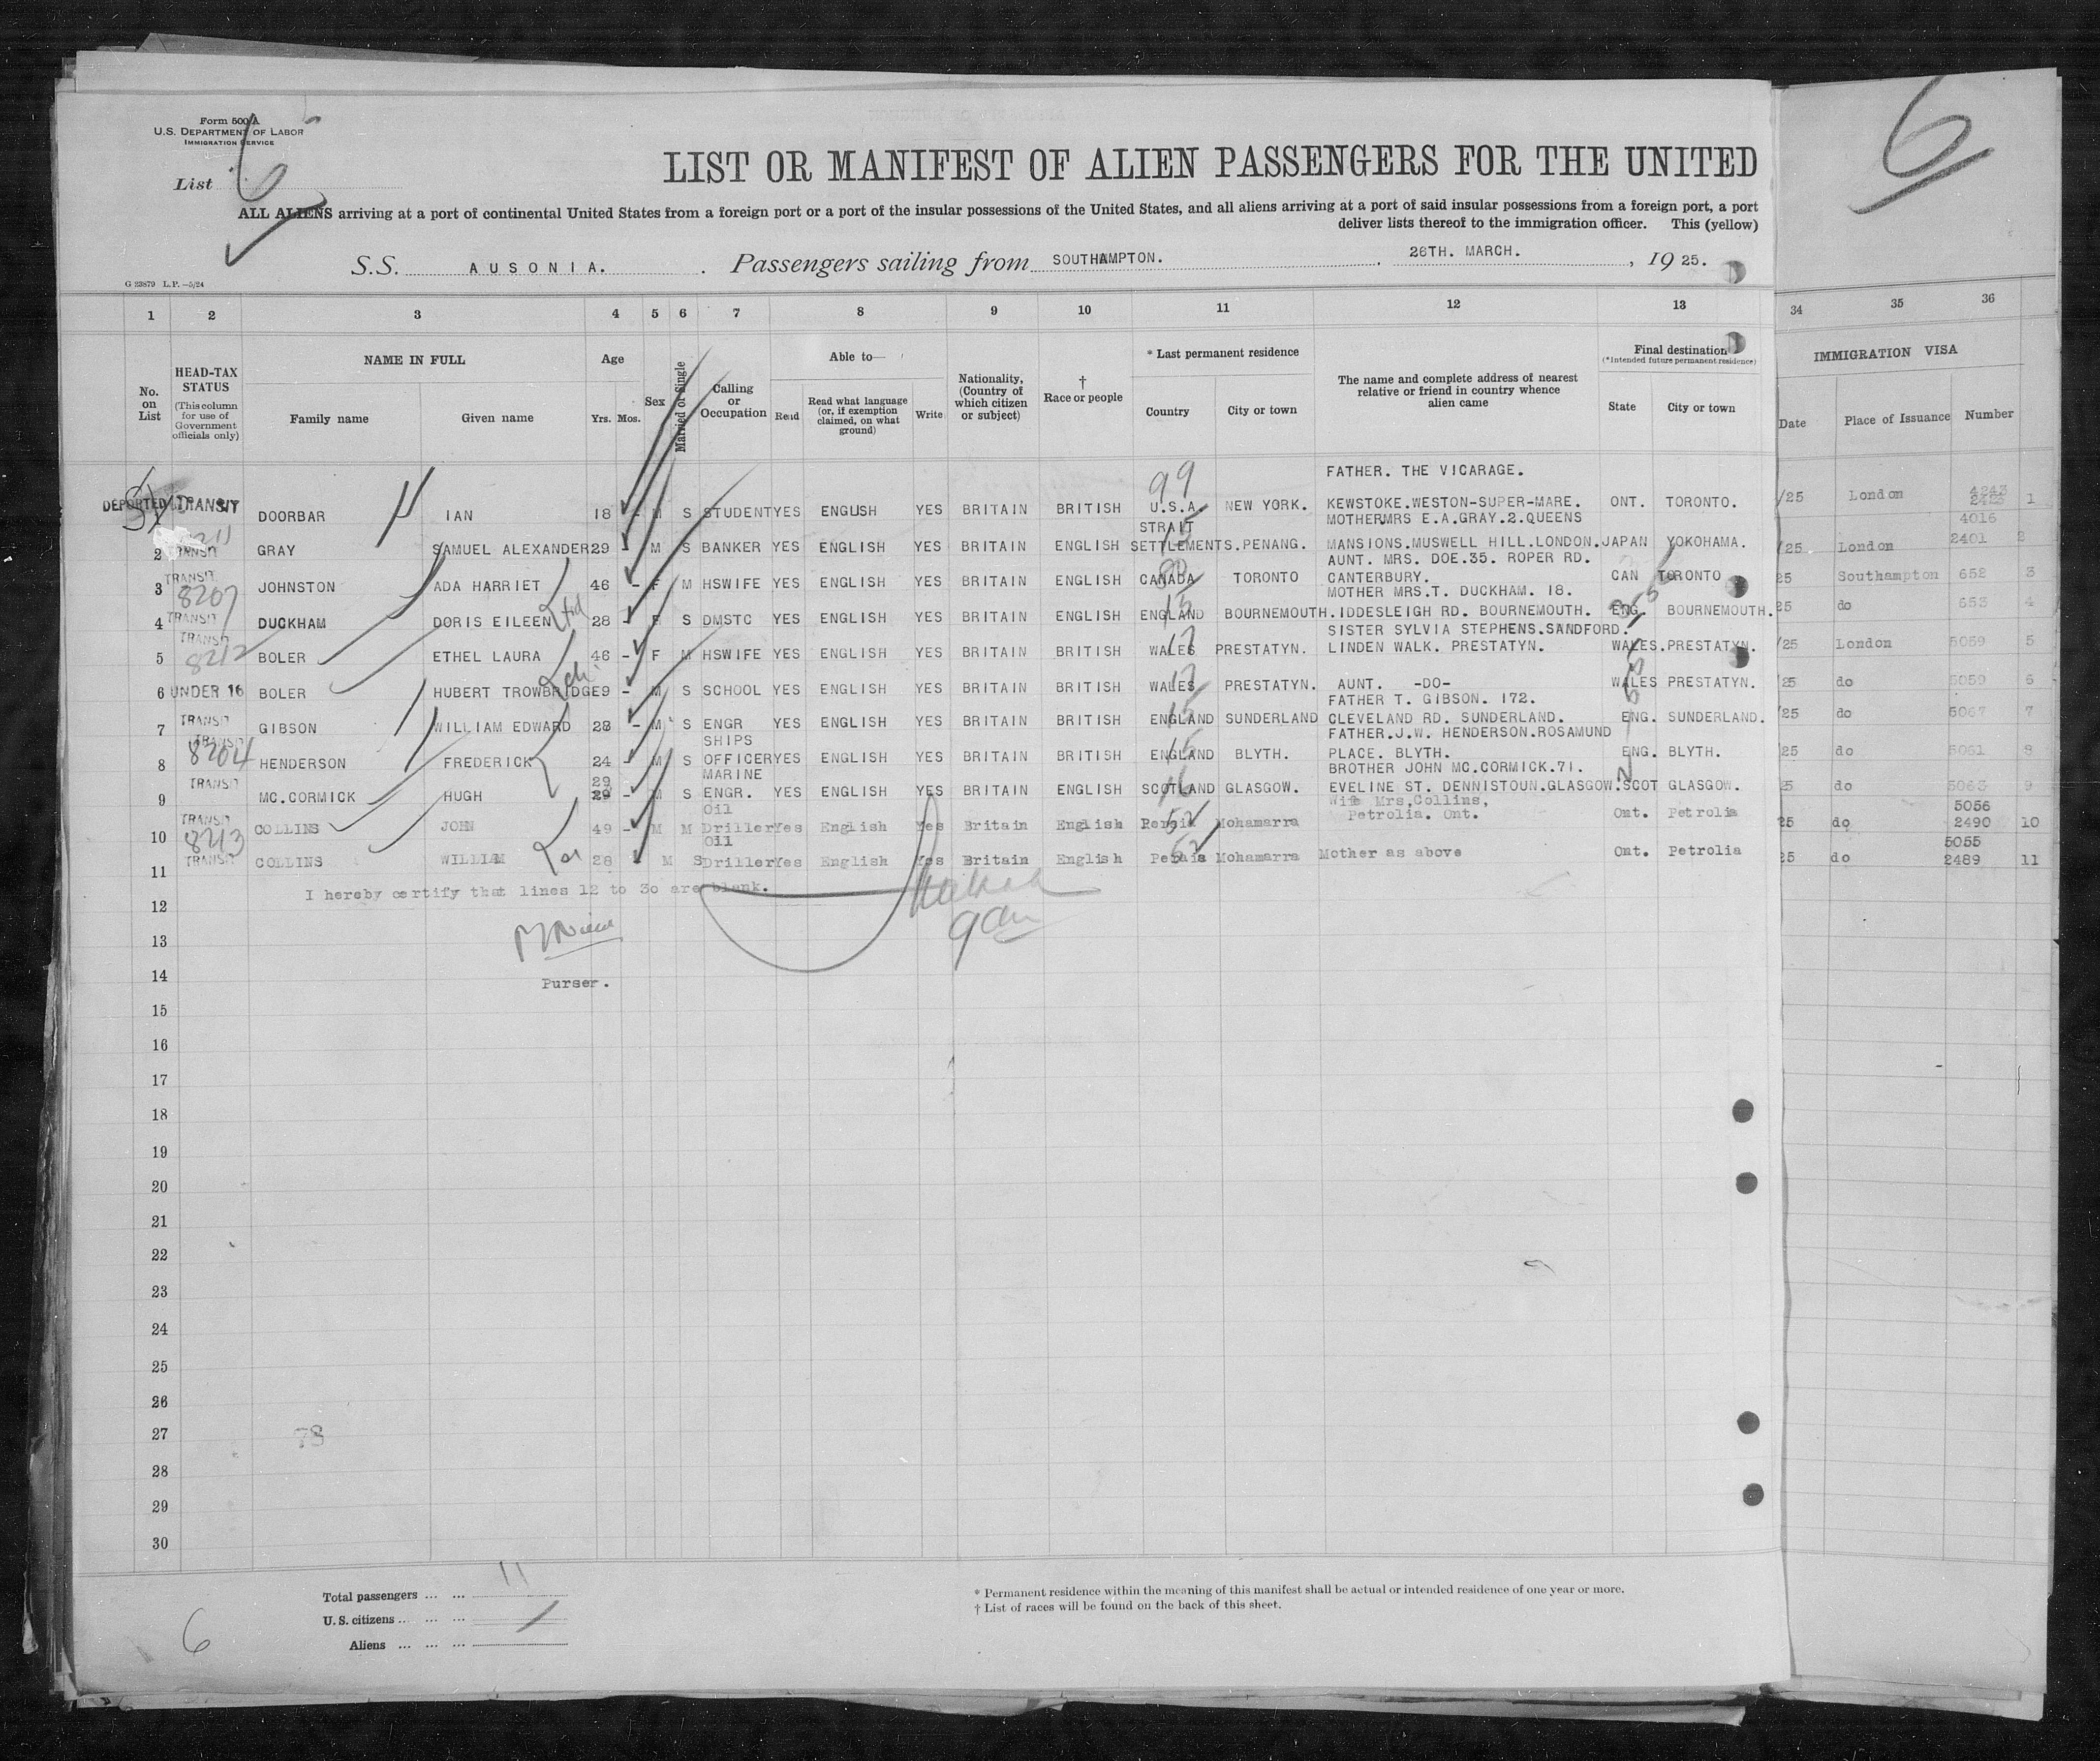 Form 500 A
U.S. DEPARTMENT OF LABOR
IMMIGRATION SERVICE
List 6
6
LIST OR MANIFEST OF ALIEN PASSENGERS FOR THE UNITED
ALL ALIENS arriving at a port of continental United States from a foreign port or a port of the insular possessions of the United States, and all aliens arriving at a port of said insular possessions from a foreign port, a port
deliver lists thereof to the immigration officer. This (yellow)
S.S. AUSONIA. Passengers sailing from SOUTHAMPTON. 26TH. MARCH. , 1925.
G 23879 L.P.—5/24
1 2 3 4 5 6 7 8 9 10 11 12 13 34 35 36
No. on List
HEAD-TAX STATUS (This column for use of Government officials only)
NAME IN FULL
Family name Given name
Age
Yrs. Mos.
Sex
Married or Single
Calling or Occupation
Able to—
Read Read what language (or, if exemption claimed, on what ground) Write
Nationality, (Country of which citizen or subject)
† Race or people
* Last permanent residence
Country City or town
The name and complete address of nearest relative or friend in country whence alien came
Final destination (*Intended future permanent residence)
State City or town
IMMIGRATION VISA
Date Place of Issuance Number
99
FATHER. THE VICARAGE.
DEPORTED TRANSIT DOORBAR IAN 18 - M S STUDENT YES ENGLISH YES BRITAIN BRITISH U.S.A. NEW YORK. KEWSTOKE.WESTON-SUPER-MARE. ONT. TORONTO. /25 London 4243 1
STRAIT MOTHER.MRS E.A.GRAY.2.QUEENS 4016
2 TRANSIT GRAY SAMUEL ALEXANDER 29 - M S BANKER YES ENGLISH YES BRITAIN ENGLISH SETTLEMENTS.PENANG. MANSIONS.MUSWELL HILL.LONDON. JAPAN YOKOHAMA. /25 London 2401 2
AUNT. MRS. DOE.35. ROPER RD.
3 TRANSIT 8207 JOHNSTON ADA HARRIET 46 - F M HSWIFE YES ENGLISH YES BRITAIN ENGLISH CANADA TORONTO CANTERBURY. CAN TORONTO 25 Southampton 652 3
MOTHER MRS.T. DUCKHAM. 18.
4 TRANSIT DUCKHAM DORIS EILEEN 28 - F S DMSTC YES ENGLISH YES BRITAIN ENGLISH ENGLAND BOURNEMOUTH. IDDESLEIGH RD. BOURNEMOUTH. ENG. BOURNEMOUTH. 25 do 653 4
SISTER SYLVIA STEPHENS.SANDFORD.
5 TRANSIT 8212 BOLER ETHEL LAURA 46 - F M HSWIFE YES ENGLISH YES BRITAIN BRITISH WALES PRESTATYN. LINDEN WALK. PRESTATYN. WALES. PRESTATYN. /25 London 5059 5
6 UNDER 16 BOLER HUBERT TROWBRIDGE 9 - M S SCHOOL YES ENGLISH YES BRITAIN BRITISH WALES PRESTATYN. AUNT. -DO- WALES PRESTATYN. 25 do 5059 6
FATHER T. GIBSON. 172.
7 TRANSIT GIBSON WILLIAM EDWARD 28 - M S ENGR YES ENGLISH YES BRITAIN BRITISH ENGLAND SUNDERLAND CLEVELAND RD. SUNDERLAND. ENG. SUNDERLAND. /25 do 5067 7
SHIPS FATHER.J.W. HENDERSON.ROSAMUND
8 TRANSIT 8204 HENDERSON FREDERICK 24 - M S OFFICER YES ENGLISH YES BRITAIN BRITISH ENGLAND BLYTH. PLACE. BLYTH. ENG. BLYTH. 25 do 5061 8
29 MARINE BROTHER JOHN MC.CORMICK.71.
9 TRANSIT MC.CORMICK HUGH 29 - M S ENGR. YES ENGLISH YES BRITAIN ENGLISH SCOTLAND GLASGOW. EVELINE ST. DENNISTOUN.GLASGOW. SCOT GLASGOW. 25 do 5063 9
Oil Wife Mrs,Collins, 5056
10 TRANSIT 8213 COLLINS JOHN 49 - M M Driller Yes English Yes Britain English Persia Mohamarra Petrolia. Ont. Ont. Petrolia 25 do 2490 10
Oil 5055
11 TRANSIT COLLINS WILLIAM 28 M S Driller Yes English Yes Britain English Persia Mohamarra Mother as above Ont. Petrolia 25 do 2489 11
I hereby certify that lines 12 to 30 are blank.
12
13
14
Purser.
15
16
17
18
19
20
21
22
23
24
25
26
27
78
28
29
30
Total passengers ... ... 11
U.S. citizens ... ... ...
Aliens ... ... ...
6
* Permanent residence within the meaning of this manifest shall be actual or intended residence of one year or more.
† List of races will be found on the back of this sheet.